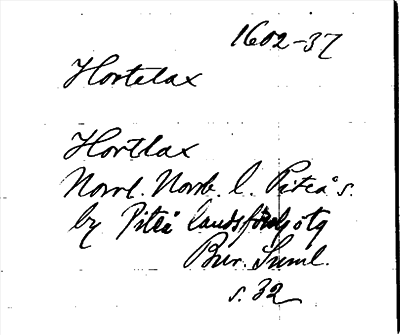 1602-37
Hortelax
Hortlax
Norrl. Norrb. l. Piteå s.
by Piteå landsförs
Bur. Saml.
s. 32